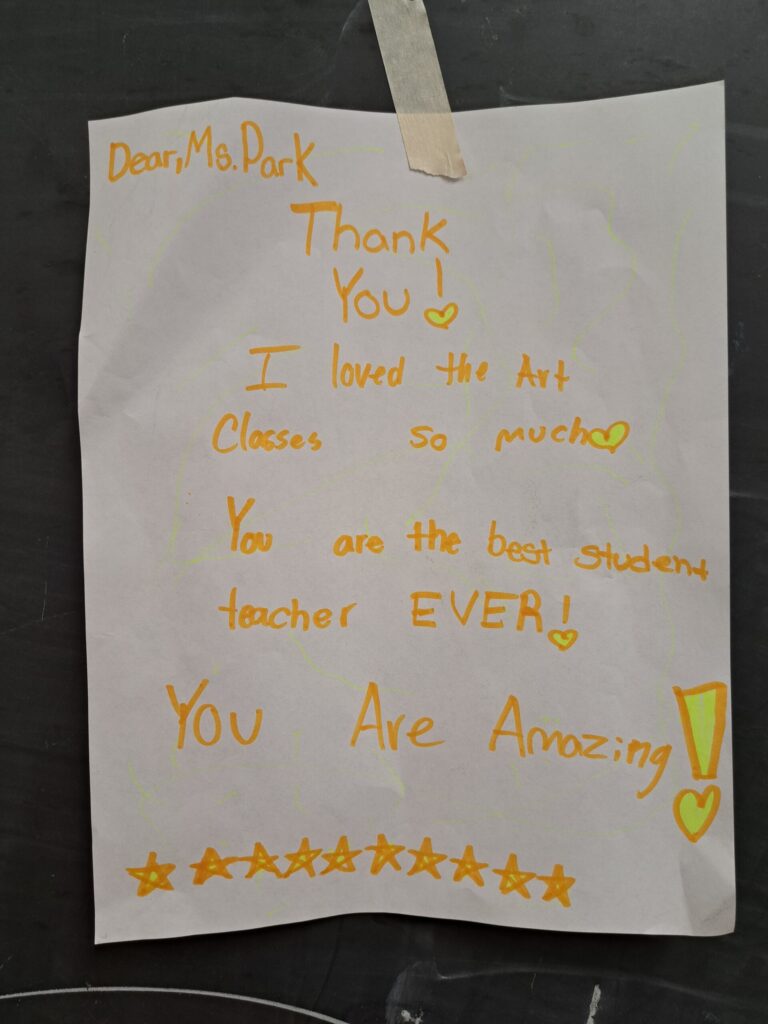 Dear, Ms. Park
Thank
You!
I loved the Art
Classes so much
You are the best student
teacher EVER!
You Are Amazing!